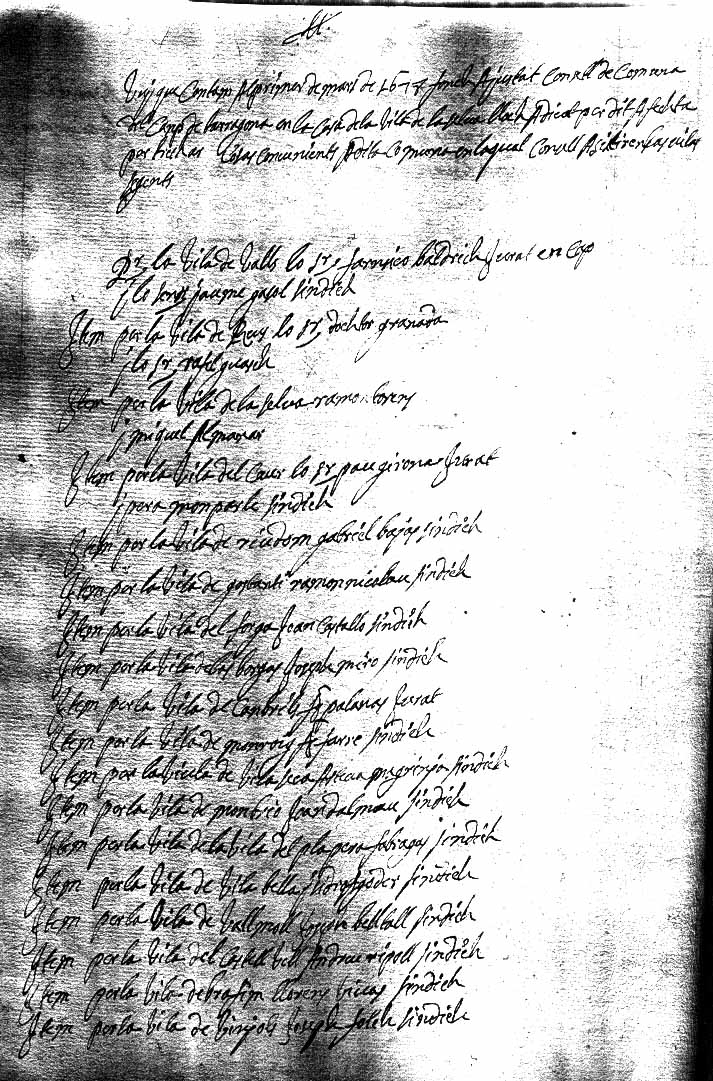 Vuy que Contam Al primer de mars de 1674 fonch Ajustat Consell de Comuna
del Camp de tarragona en la Casa de la Vila de la selva lloch Adicat per dit Afecta
per tractar Cosas convenients A dita Comuna en la qual Consell Asistiren las vilas
seguents
Pr. la Vila de Valls lo Sr. fransico baldrich Jurat en Cap
y lo Senyr Jaume gasol sindich
Item per la Vila de Reus lo Sr. doctor granada
y lo Sr. rafel guasch
Item per la Vila de la selva ramon lorens
y miquel Almanar
Item per la Vila del Cuer lo Sr. pau girona Jurat
y pera monparle sindich
Item per la Vila de riudoms gabriel bajas sindich
Item per la Vila de ramon nicolau sindich
Item per la Vila del Joan Castello sindich
Item per la Vila de las borgas Joseph miro sindich
Item per la Vila de Canbrils palanas Jurat
Item per la Vila de monroig farre sindich
Item per la Vicula de Vila seca Esteva magrinya sindich
Item per la Vila de monbrio Joan dalmau sindich
Item per la Vila de la Vila del pla pera fabragas sindich
Item per la Vila de Vila bella sindich
Item per la Vila de Vallmoll belltall sindich
Item per la Vila del Castell Vell Andreu ripoll sindich
Item per la Vila de brafim llorens vivas sindich
Item per la Vila de Vinyols Joseph folch sindich